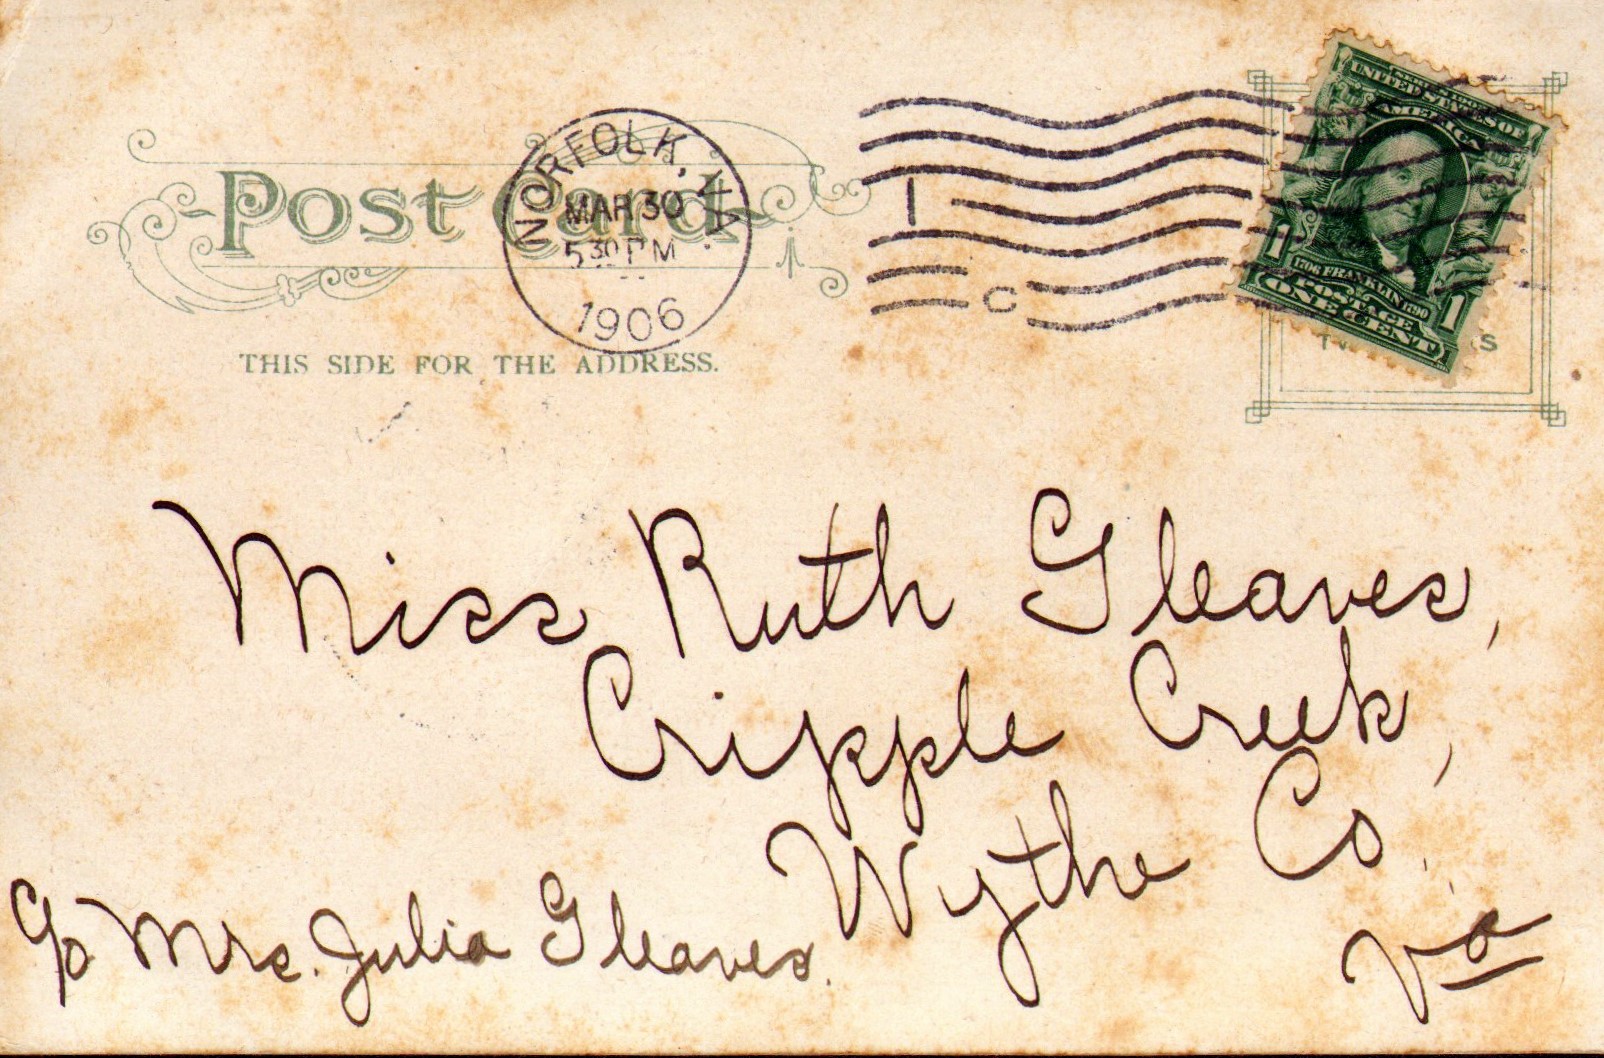 Post Card
THIS SIDE FOR THE ADDRESS.
NORFOLK, VA.
MAR 30
5 30 PM
1906
1
C
SERIES 1902
UNITED STATES OF
AMERICA
1706 FRANKLIN 1790
POSTAGE
1 ONE CENT 1
S
Miss Ruth Gleaves,
Cripple Creek,
Wythe Co.
Va
c/o Mrs. Julia Gleaves.